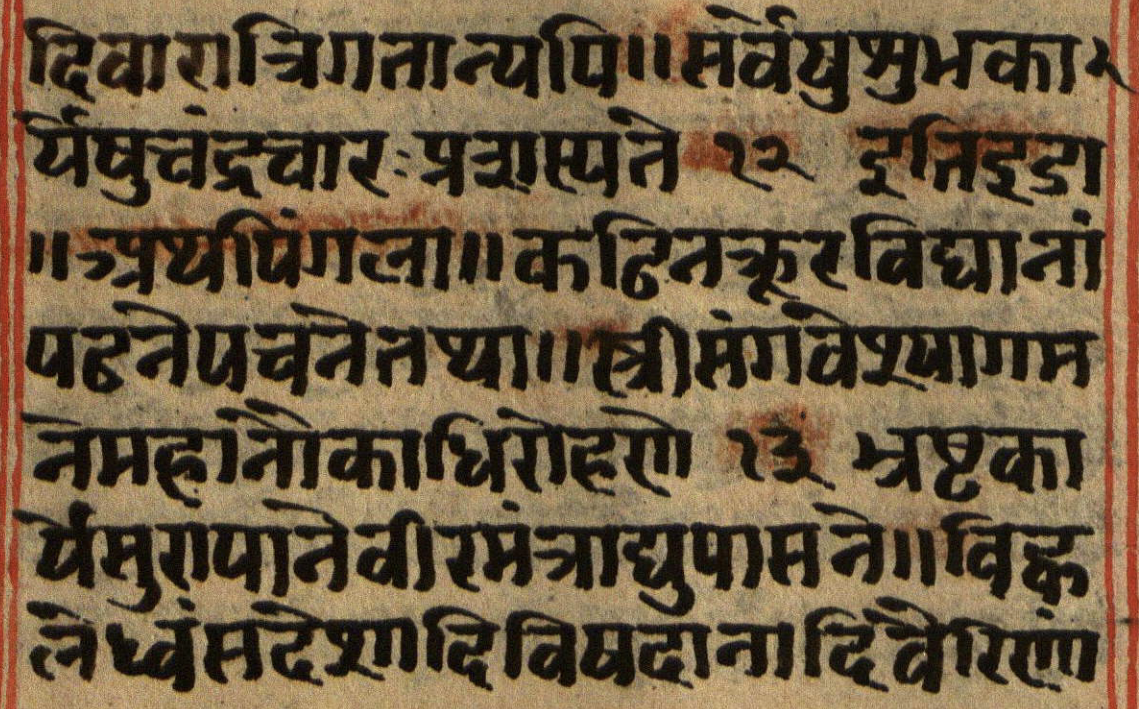 दिवारात्रिगतान्यपि॥सर्वेषुशुभका
र्येषुचंद्रचारःप्रशस्यते १२ इतिइडा
॥अथपिंगला॥कठिनक्रूरविद्यानां
पठनेपचनेतथा॥स्त्रीसंगवेश्यागम
नेमहानौकाधिरोहणे १३ भ्रष्टका
र्येसुरापानेवीरमंत्राद्युपासने॥विह्व
लेध्वंसदेशादिविषदानादिवैरिणां